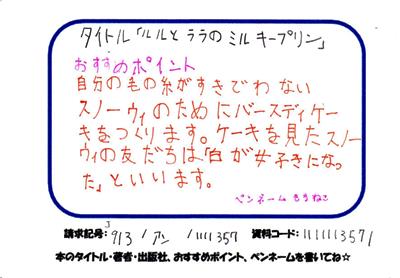 タイトル「ルルとララのミルキープリン」
おすすめポイント
自分の毛の糸がすきでわない
スノーウィのためにバースディケー
キをつくります。ケーキを見たスノー
ウィの友だちは「白が好きになっ
た」といいます。
ペンネーム ももねこ
請求記号: J 913 / アン / 1111357 資料コード: 111111357/
本のタイトル・著者・出版社、おすすめポイント、ペンネームを書いてね☆